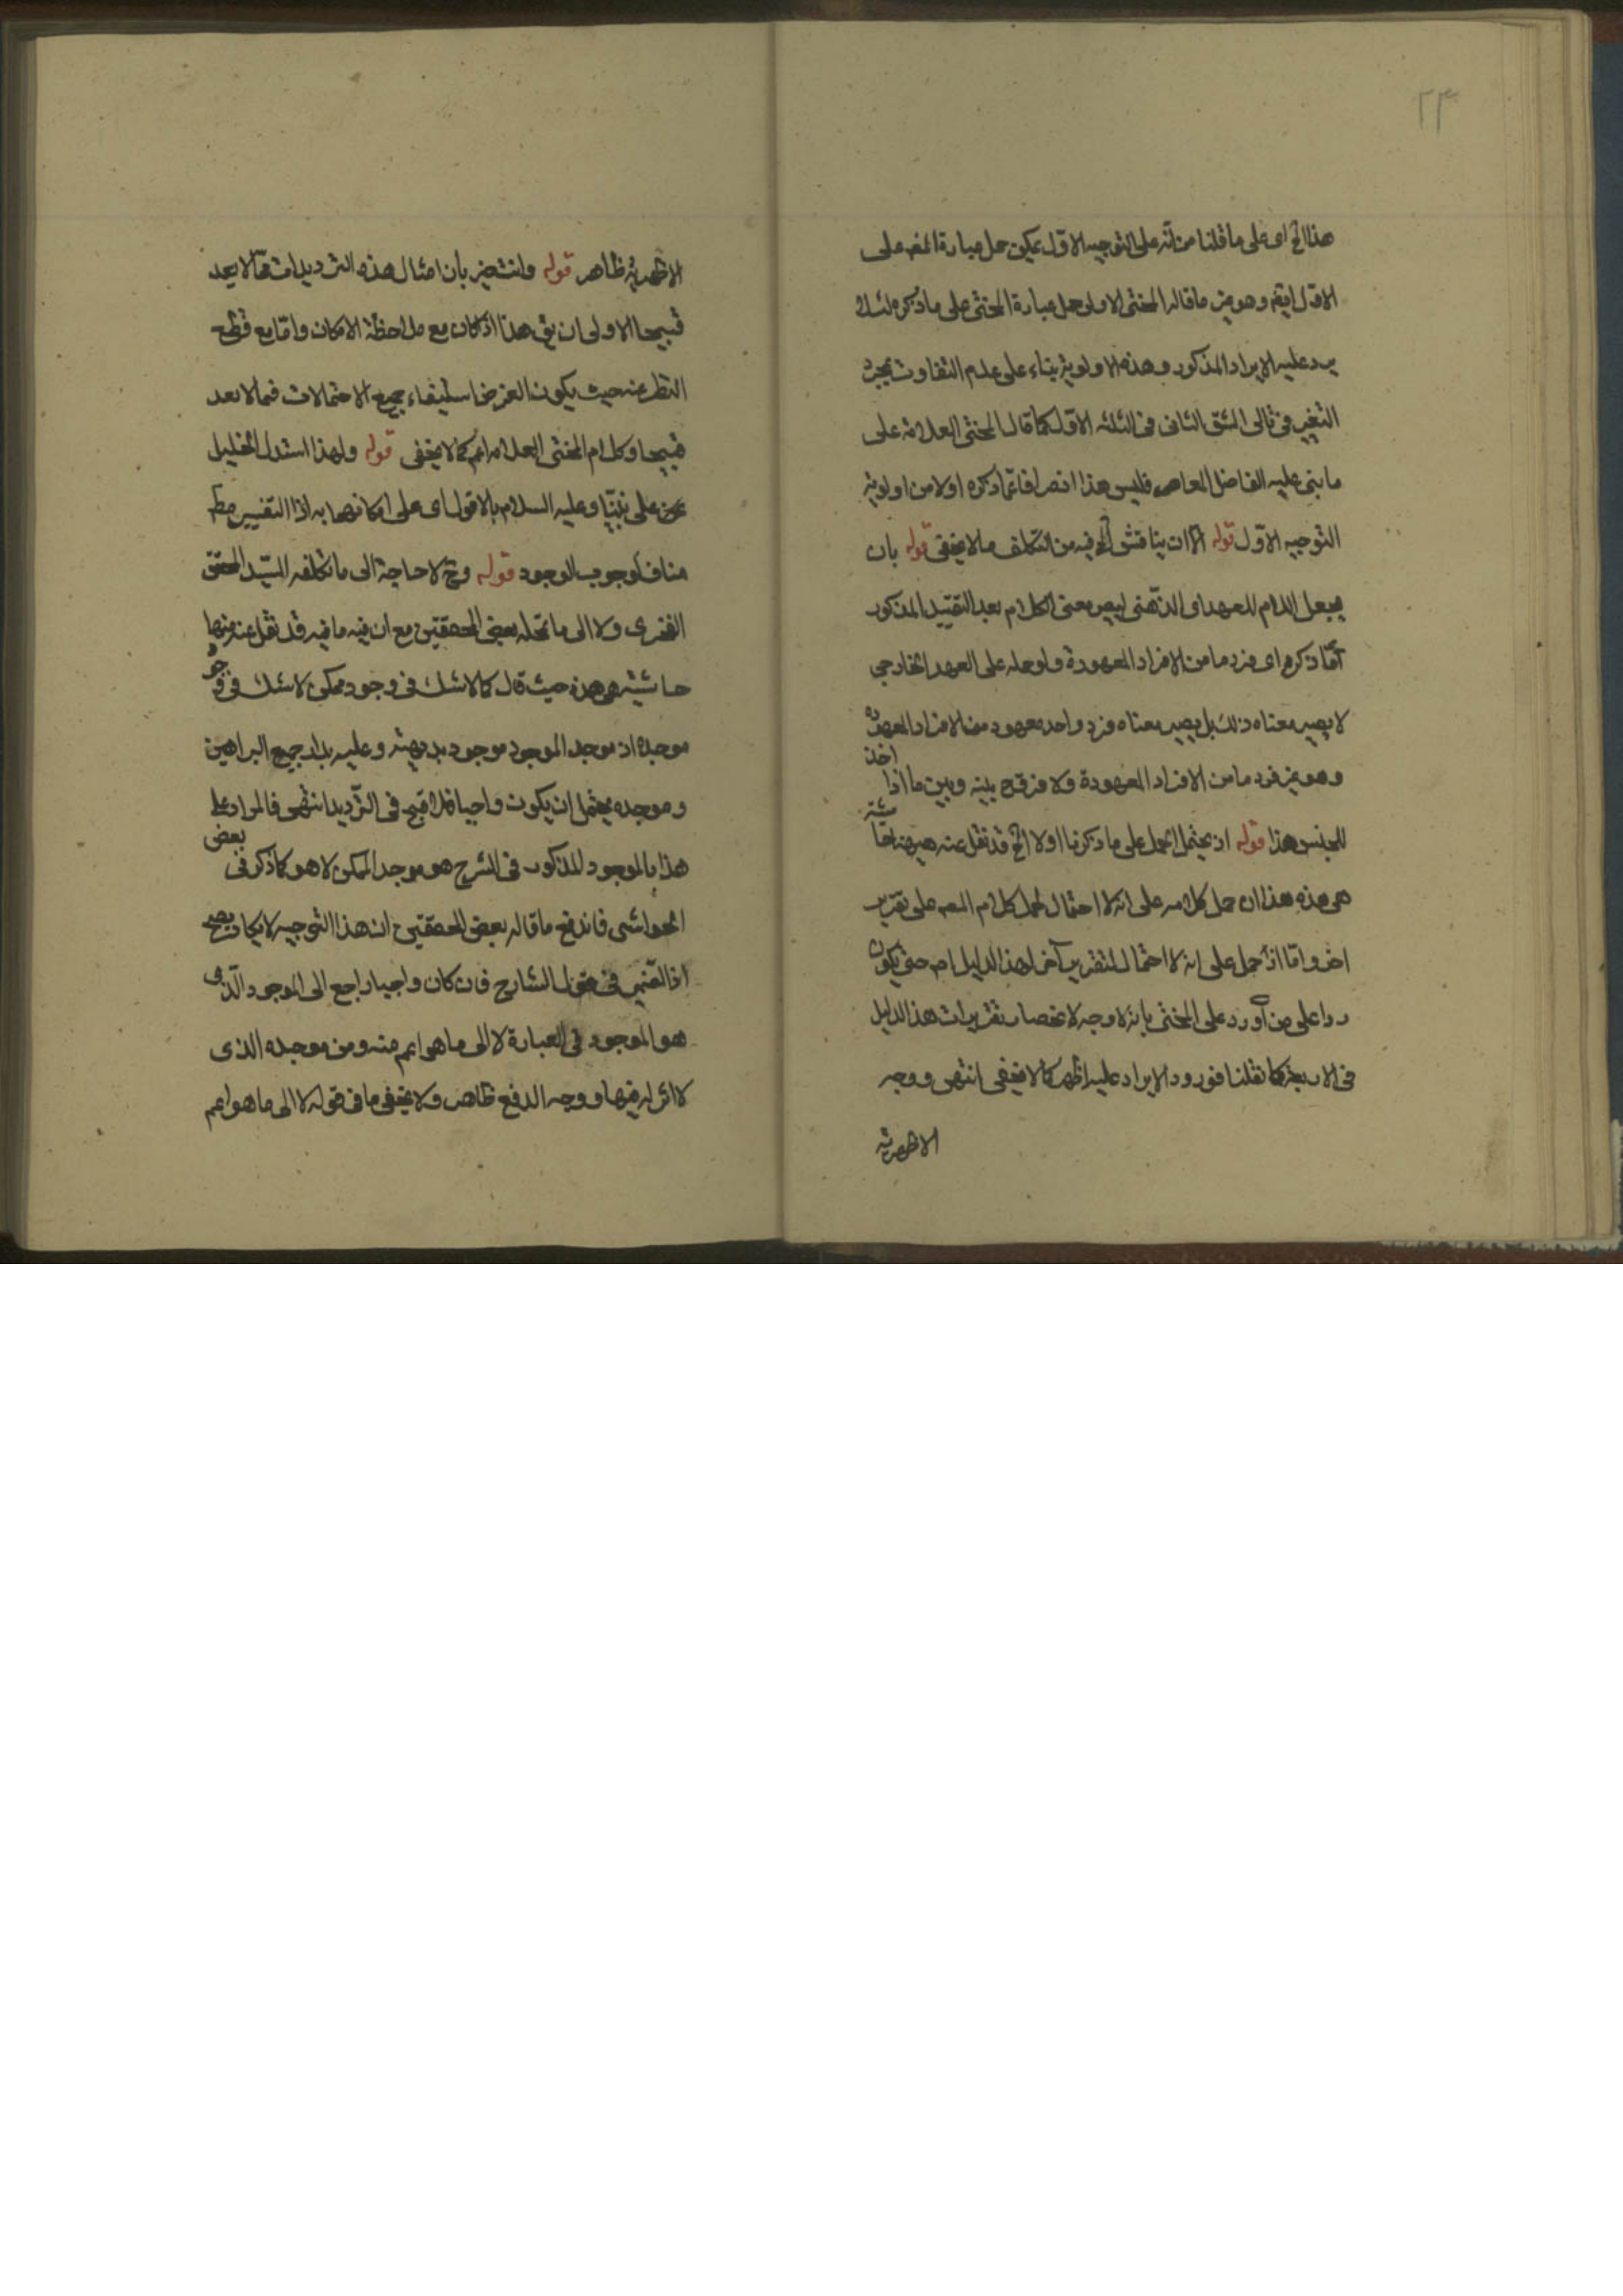 ٢٣
هذا الخ اى على ما قلنا من انه على التوجيه الاول يمكن حمل عبارة المص على
الاول ايضم وهو من ما قاله المحشى الاولى حمل عبارة المحشى على ما ذكره لئلا
يرد عليه الايراد المذكور وهذه الاولوية بناء على عدم التفاوت بمجرد
التغير فى تالى الشق الثانى فى الثلثه الاول كما قال المحشى العلامة على
ما بنى عليه الفاضل المعاصر فليس هذا انصرافا عما ذكره اولا من اولوية
التوجيه الاول قوله الا ان يناقش الخ فيه من التكلف ما لا يخفى قوله بان
يجعل اللام للعهد اى الذهنى ليصير معنى الكلام بعد التقييد المذكور
آنفا ذكره اى فرد ما من الافراد المعهودة ولو حمله على العهد الخارجي
لا يصير معناه ذلك بل يصير معناه فرد واحد معهود من الافراد المعهوده
وهو غير فرد ما من الافراد المعهودة ولا فرق بينه وبين ما اذا اخذ
للجنس هذا قوله اذ يحتمل الحمل على ما ذكرنا اولا الخ قد نقل عنه هيهنا حاشية
هى هذه هذا ان حمل كلامه على انه لا احتمال لحمل كلام المص على تقرير
اخر واما اذا حمل على انه لا احتمال لتقرير آخر لهذا الدليل ام حتى يكون
ردا على من آورد على المحشى بانه لا وجه لانحصار تقريرات هذا الدليل
فى الاربعة كما نقلنا فورود الايراد عليه اظهر كما لا يخفى انتهى ووجه
الاظهرية
الاظهرية ظاهر قوله وانت خبير بان امثال هذه الترديدات مما لا يعد
قبيحا الاولى ان يق هذا اذا كان مع ملاحظة الامكان واما مع قطع
النظر عنه حيث يكون الغرض استيفاء جميع الاحتمالات فمما لا يعد
قبيحا وكلام المحشى العلامه اعم كما لا يخفى قوله ولهذا استدل الخليل
على نبينا وعليه السلام بالافول اى على امكانهما به اذا التغيير مطم
مناف لوجوب الوجود قوله وح لا حاجة الى ما تكلفه السيد المحقق
الفخرى ولا الى ما تحمله بعض المحققين مع ان فيه ما فيه قد نقل عنه منها
حاشية هى هذه حيث قال كما لا شك فى وجود ممكن لا شك فى وجود
موجده اذ موجد الموجود موجود بديهة وعليه يدار جميع البراهين
وموجده يحتمل ان يكون واجبا فلا قبح فى الترديد انتهى فالمراد على
هذا بالموجود المذكور فى الشرح هو موجد الممكن لا هو كما ذكر فى بعض
الحواشى فاندفع ما قاله بعض المحققين ان هذا التوجيه لا يكاد يصح
اذ الضمير فى قول الشارح فان كان واجبا راجع الى الموجود الذى
هو الموجود فى العبارة لا الى ما هو اعم منه ومن موجده الذى
لا اثر له فيها ووجه الدفع ظاهر ولا يخفى ما فى قوله لا الى ما هو اعم